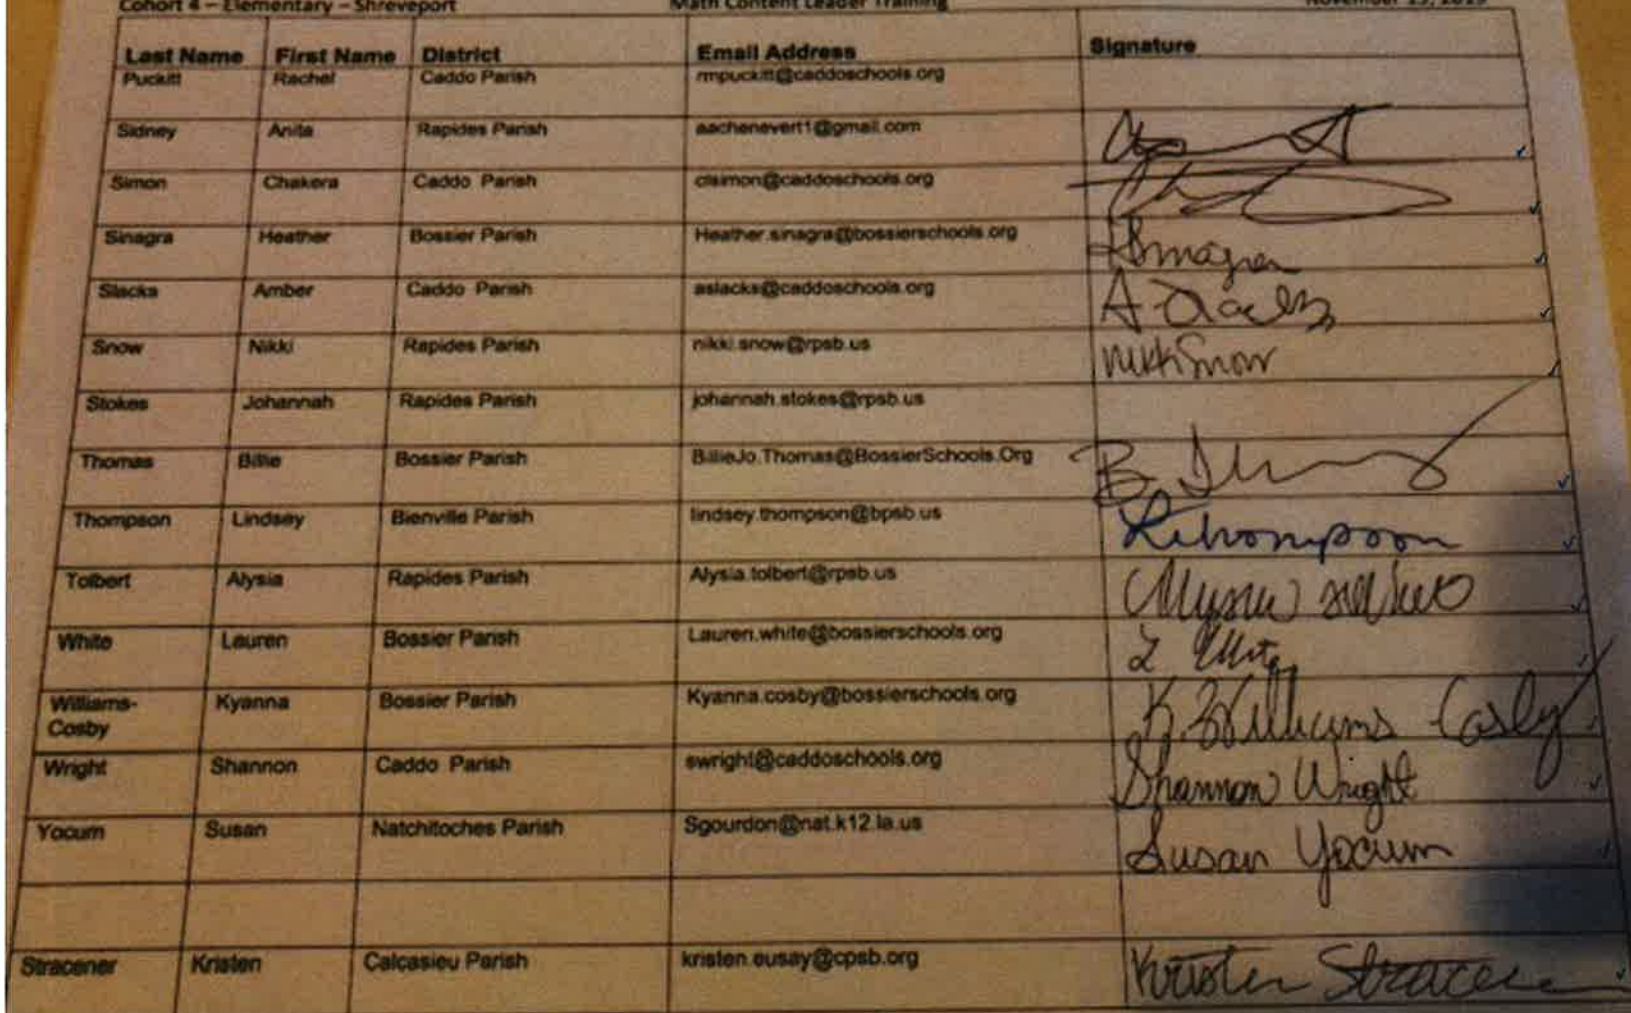 Cohort 4 – Elementary – Shreveport Math Content Leader Training November 15, 2019
Last Name First Name District Email Address Signature
Puckitt Rachel Caddo Parish rmpuckitt@caddoschools.org
Sidney Anita Rapides Parish aachenevert1@gmail.com
Simon Chakera Caddo Parish clsimon@caddoschools.org
Sinagra Heather Bossier Parish Heather.sinagra@bossierschools.org
Slacks Amber Caddo Parish aslacks@caddoschools.org A Slacks
Snow Nikki Rapides Parish nikki.snow@rpsb.us Nikki Snow
Stokes Johannah Rapides Parish johannah.stokes@rpsb.us
Thomas Billie Bossier Parish BillieJo.Thomas@BossierSchools.Org
Thompson Lindsey Bienville Parish lindsey.thompson@bpsb.us
Tolbert Alysia Rapides Parish Alysia.tolbert@rpsb.us
White Lauren Bossier Parish Lauren.white@bossierschools.org
Williams- Kyanna Bossier Parish Kyanna.cosby@bossierschools.org K. Williams Cosby
Cosby
Wright Shannon Caddo Parish swright@caddoschools.org Shannon Wright
Yocum Susan Natchitoches Parish Sgourdon@nat.k12.la.us Susan Yocum
Stracener Kristen Calcasieu Parish kristen.eusay@cpsb.org Kristen Stracener